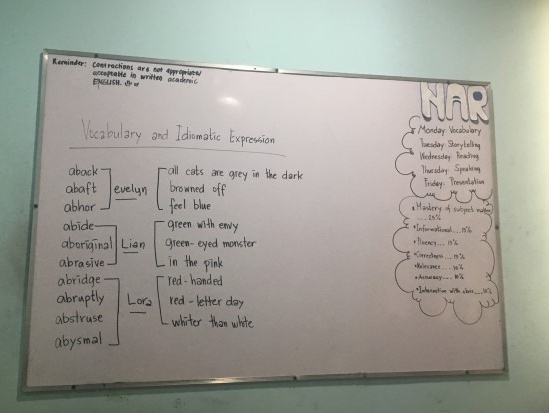 Reminder: Contractions are not appropriate/
acceptable in written academic
ENGLISH.
Vocabulary and Idiomatic Expression
aback
abaft
abhor
evelyn
all cats are grey in the dark
browned off
feel blue
abide
aboriginal
abrasive
Lian
green with envy
green-eyed monster
in the pink
abridge
abruptly
abstruse
abysmal
Lora
red-handed
red-letter day
whiter than white
NAR
Monday: Vocabulary
Tuesday: Storytelling
Wednesday: Reading
Thursday: Speaking
Friday: Presentation
Mastery of subject matter
.... 25%
Informational... 15%
Fluency... 15%
Correctness... 15%
Relevance... 10%
Accuracy... 10%
Interaction with